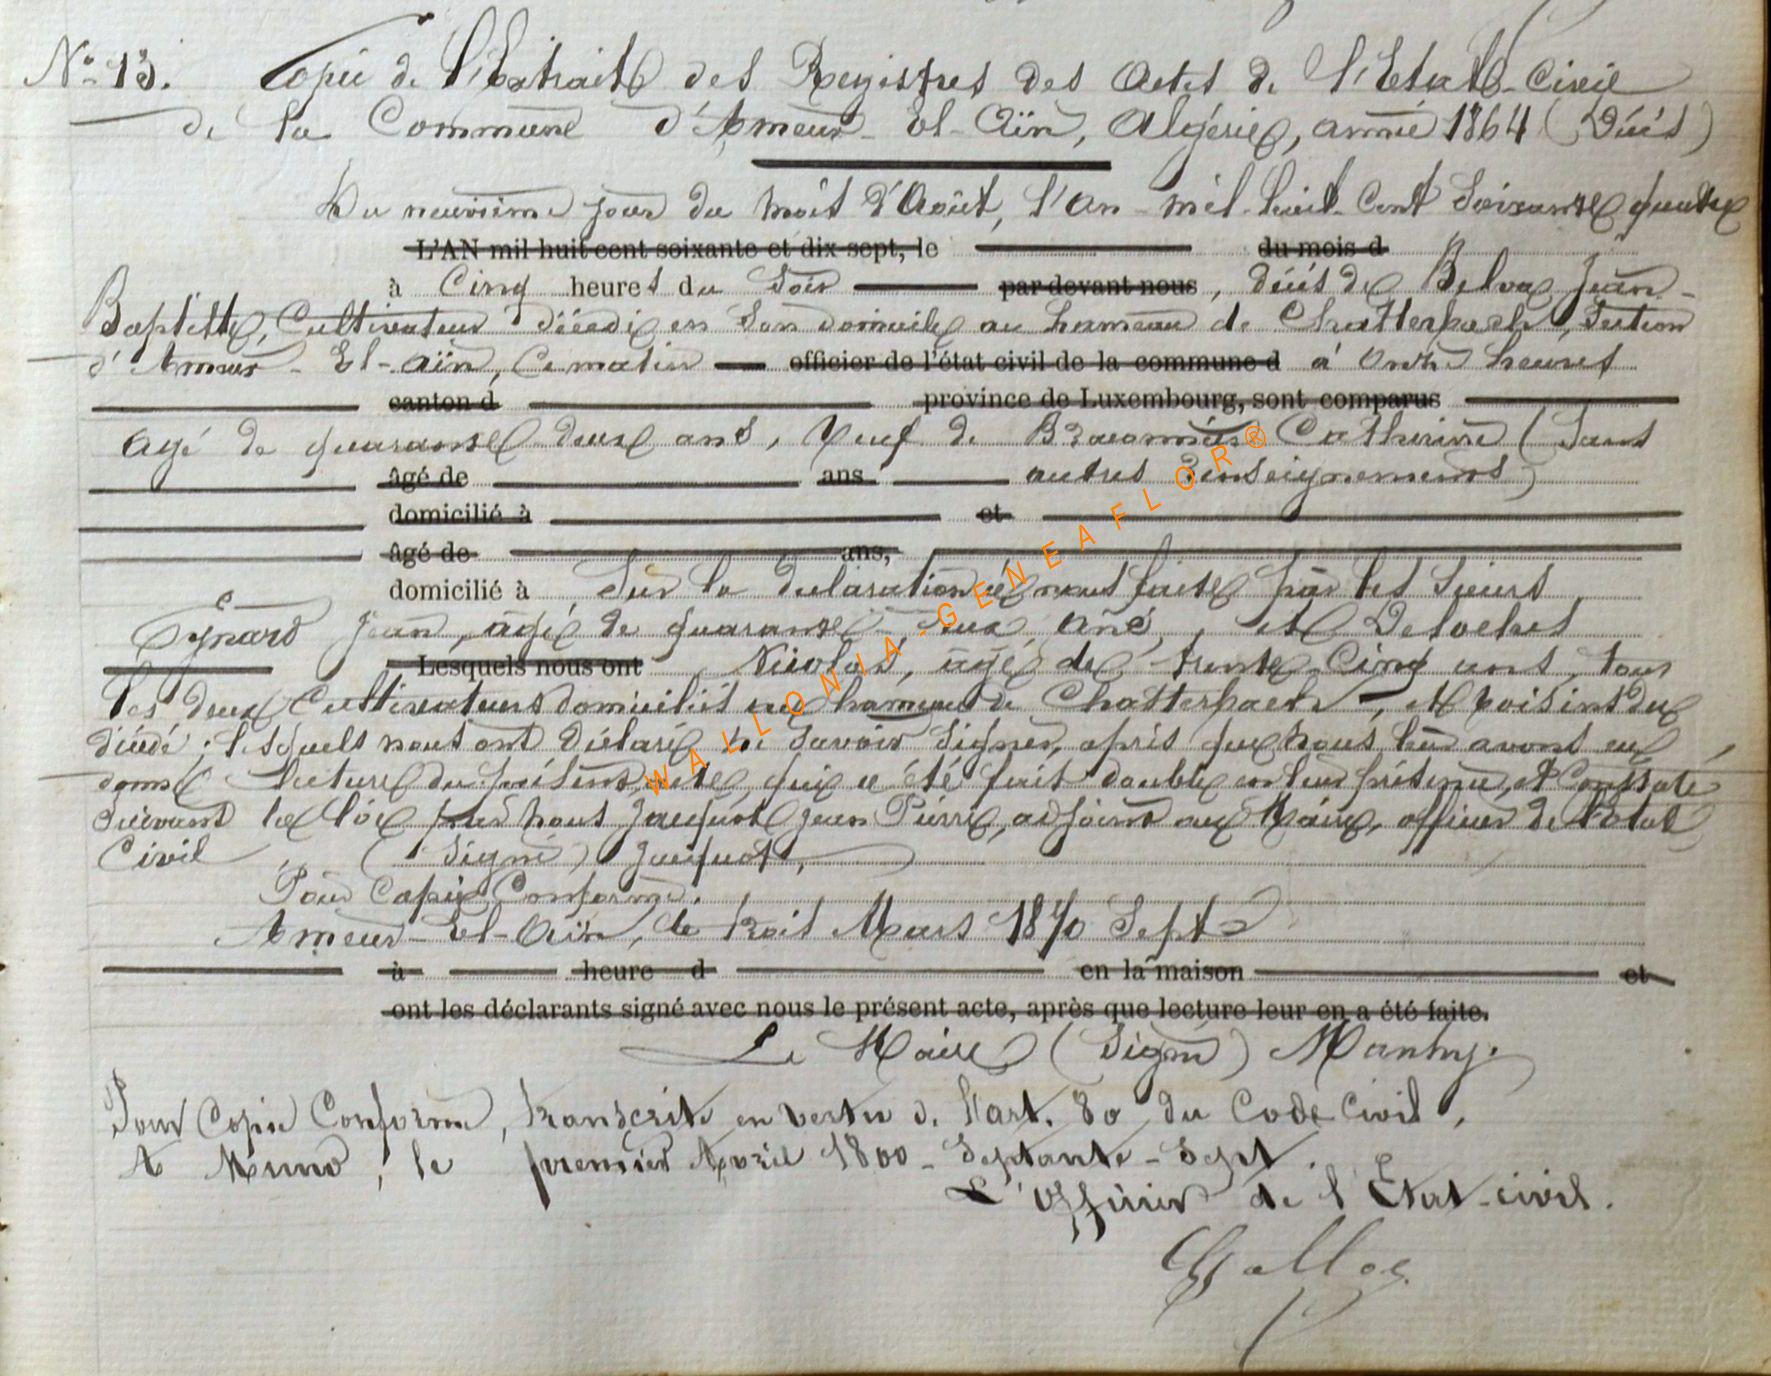 N° 13. Copie de l'Extrait des Registres des Actes de l'Etat-Civil
de la Commune d'Ameur-El-Aïn, Algérie, année 1864 (Décès)
Du neuvième jour du mois d'Août, l'an mil huit cent soixante quatre
L'AN mil huit cent soixante et dix sept, le du mois d
à Cinq heures du Soir par devant nous, décès de Belva Jean-
Baptiste, Cultivateur décédé en son domicile au hameau de Chatterbach, Section
d'Ameur-El-Aïn, Ce matin officier de l'état civil de la commune d à onze heures
canton d province de Luxembourg, sont comparus
agé de quarante deux ans, Veuf de Catherine (Sans
âgé de ans autres renseignements)
domicilié à et
âgé de ans,
domicilié à Sur la déclaration à nous faite par les Sieurs
Eynard Jean, âgé de quarante deux ans, et Deloches
Lesquels nous ont Nicolas, âgé de trente-Cinq ans, tous
les deux Cultivateurs domiciliés au hameau de Chatterbach, et voisins du
décédé; lesquels nous ont déclaré ne Savoir Signer, après que nous leur avons eu
donné lecture du présent acte, qui a été fait double en leur présence, et Constaté
Suivant la loi par nous Jacquot Jean Pierre, adjoint au Maire, officier de l'Etat
Civil (Signé) Jacquot,
Pour Copie Conforme.
Ameur-El-Aïn, le trois Mars 1870 Sept
à heure d en la maison et
ont les déclarants signé avec nous le présent acte, après que lecture leur en a été faite.
Le Maire (Signé)
Pour Copie Conforme, transcrite en vertu de l'art. 80 du Code Civil,
A Muno, le premier Avril 1800-Septante-Sept.
L'Officier de l'Etat-civil.
WALLONIA-GENEAFLOR®